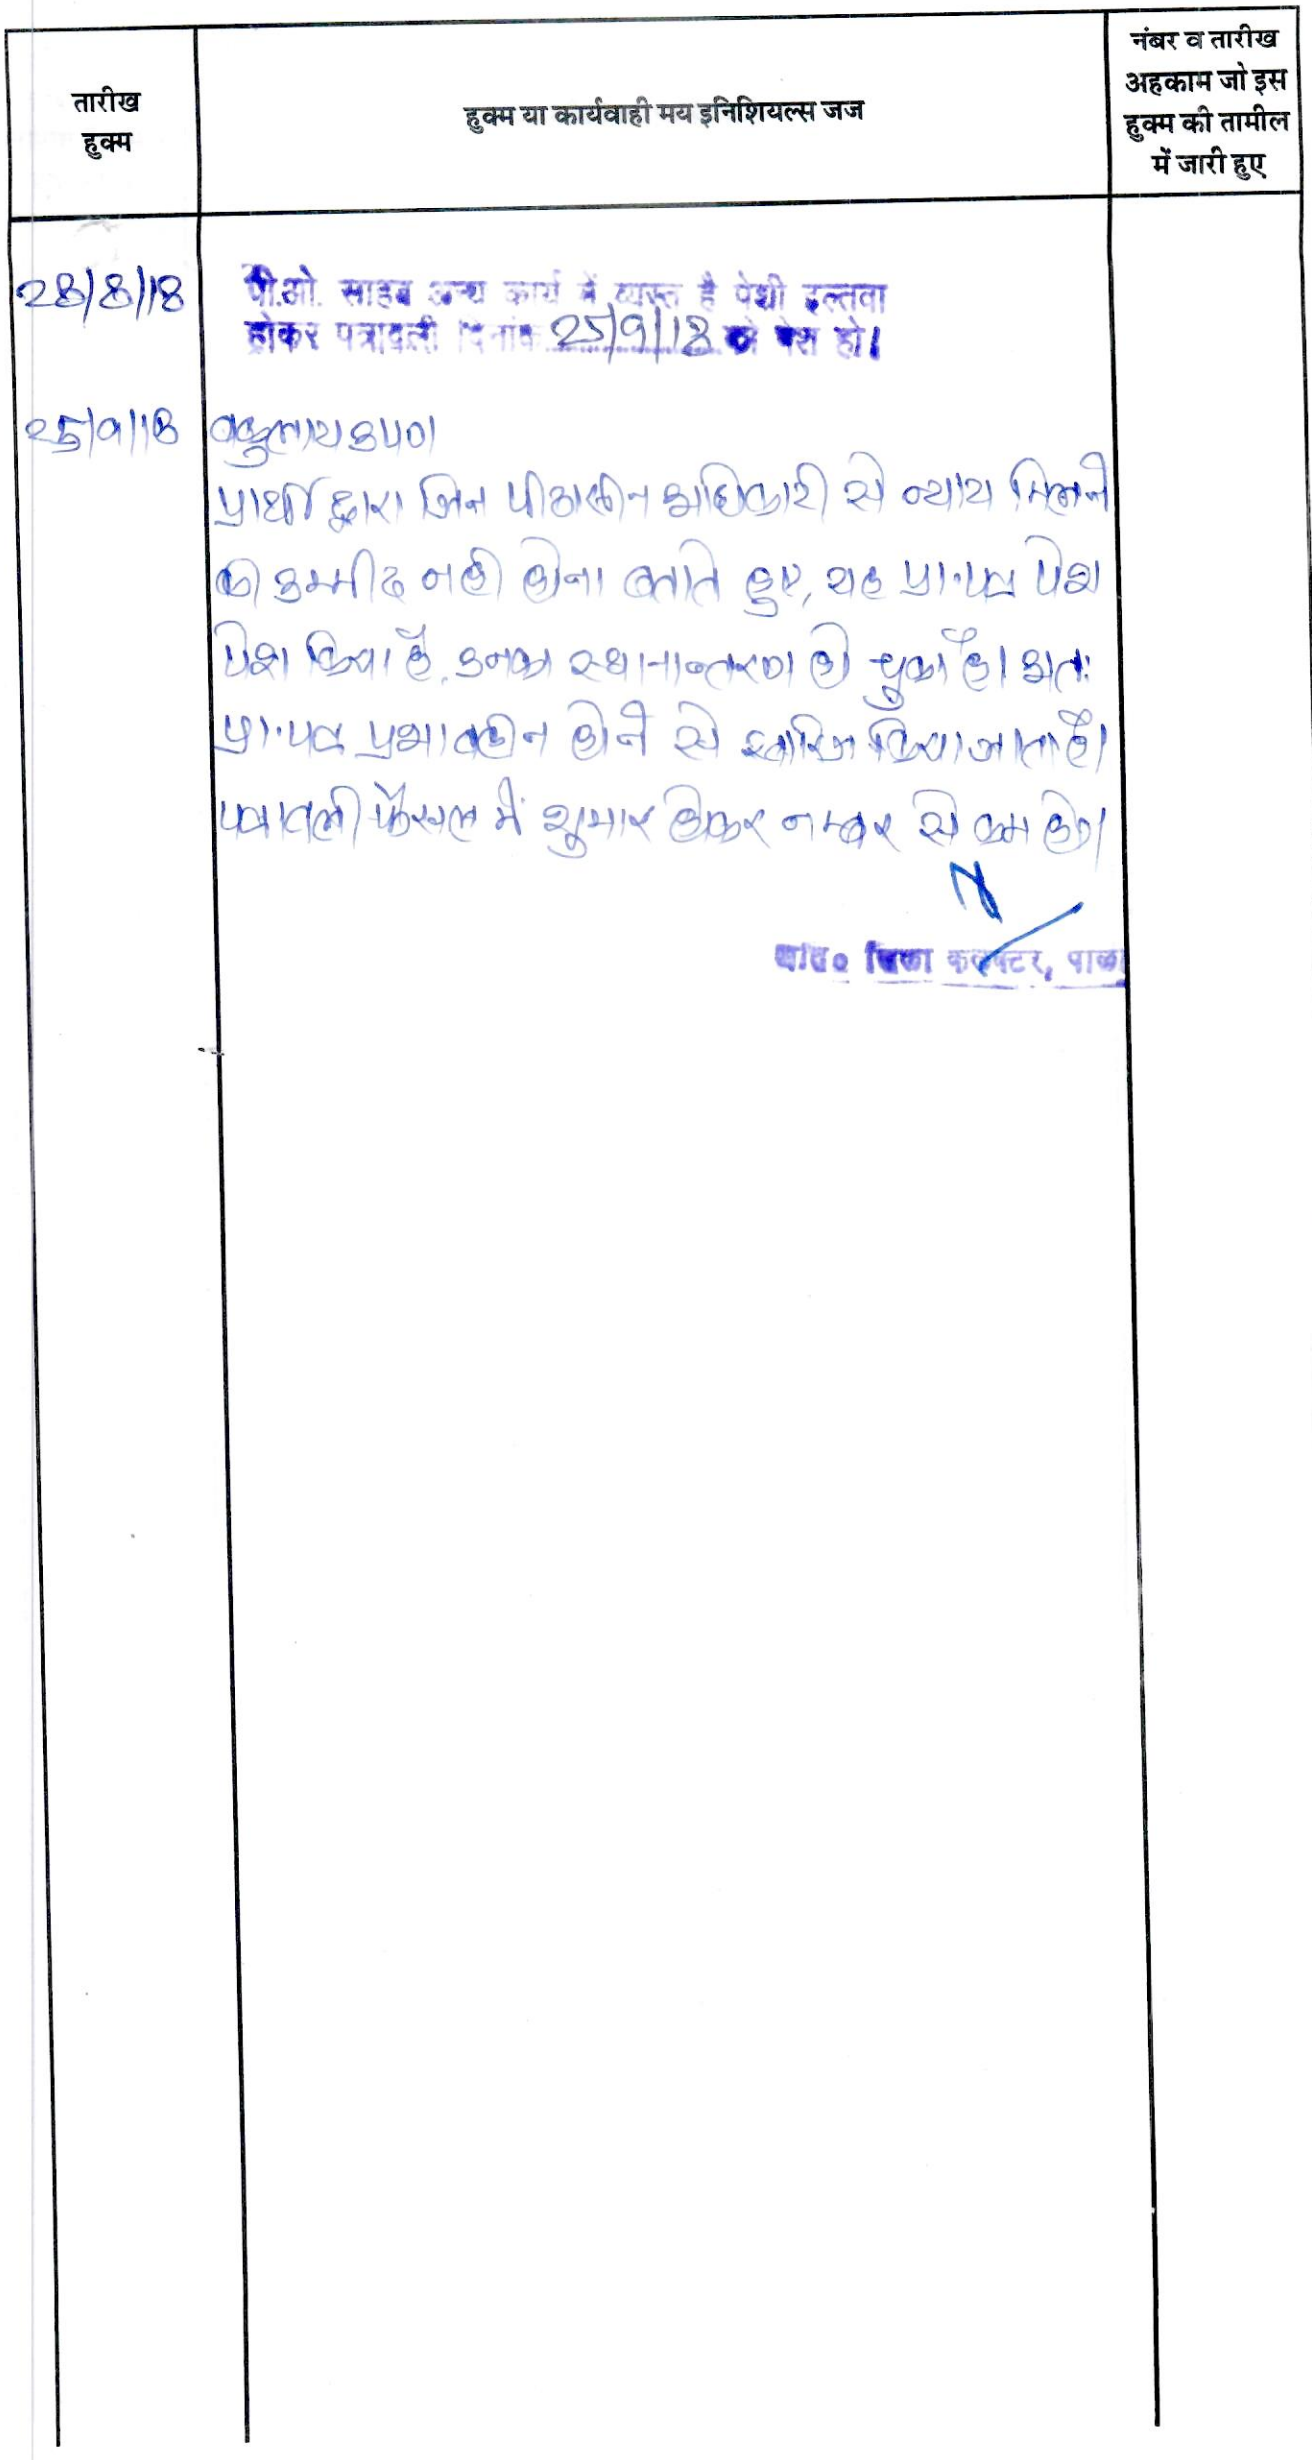 तारीख
हुक्म
हुक्म या कार्यवाही मय इनिशियल्स जज
नंबर व तारीख
अहकाम जो इस
हुक्म की तामील
में जारी हुए
28/8/18
पी.ओ. साहब अन्य कार्य में व्यस्त है पेशी इल्तवा
होकर पत्रावली दिनांक 25/9/18 को पेश हो।
25/9/18
वकुलाय उप०।
प्रार्थी द्वारा जिन पीठासीन अधिकारी से न्याय मिलने
की उम्मीद नही होना बताते हुए, यह प्रा.पत्र पेश
पेश किया है, उनका स्थानान्तरण हो चुका है। अतः
प्रा.पत्र प्रभावहीन होने से खारिज किया जाता है।
पत्रावली फैसल में शुमार होकर नम्बर से कम हो।
अति० जिला कलक्टर, पाली